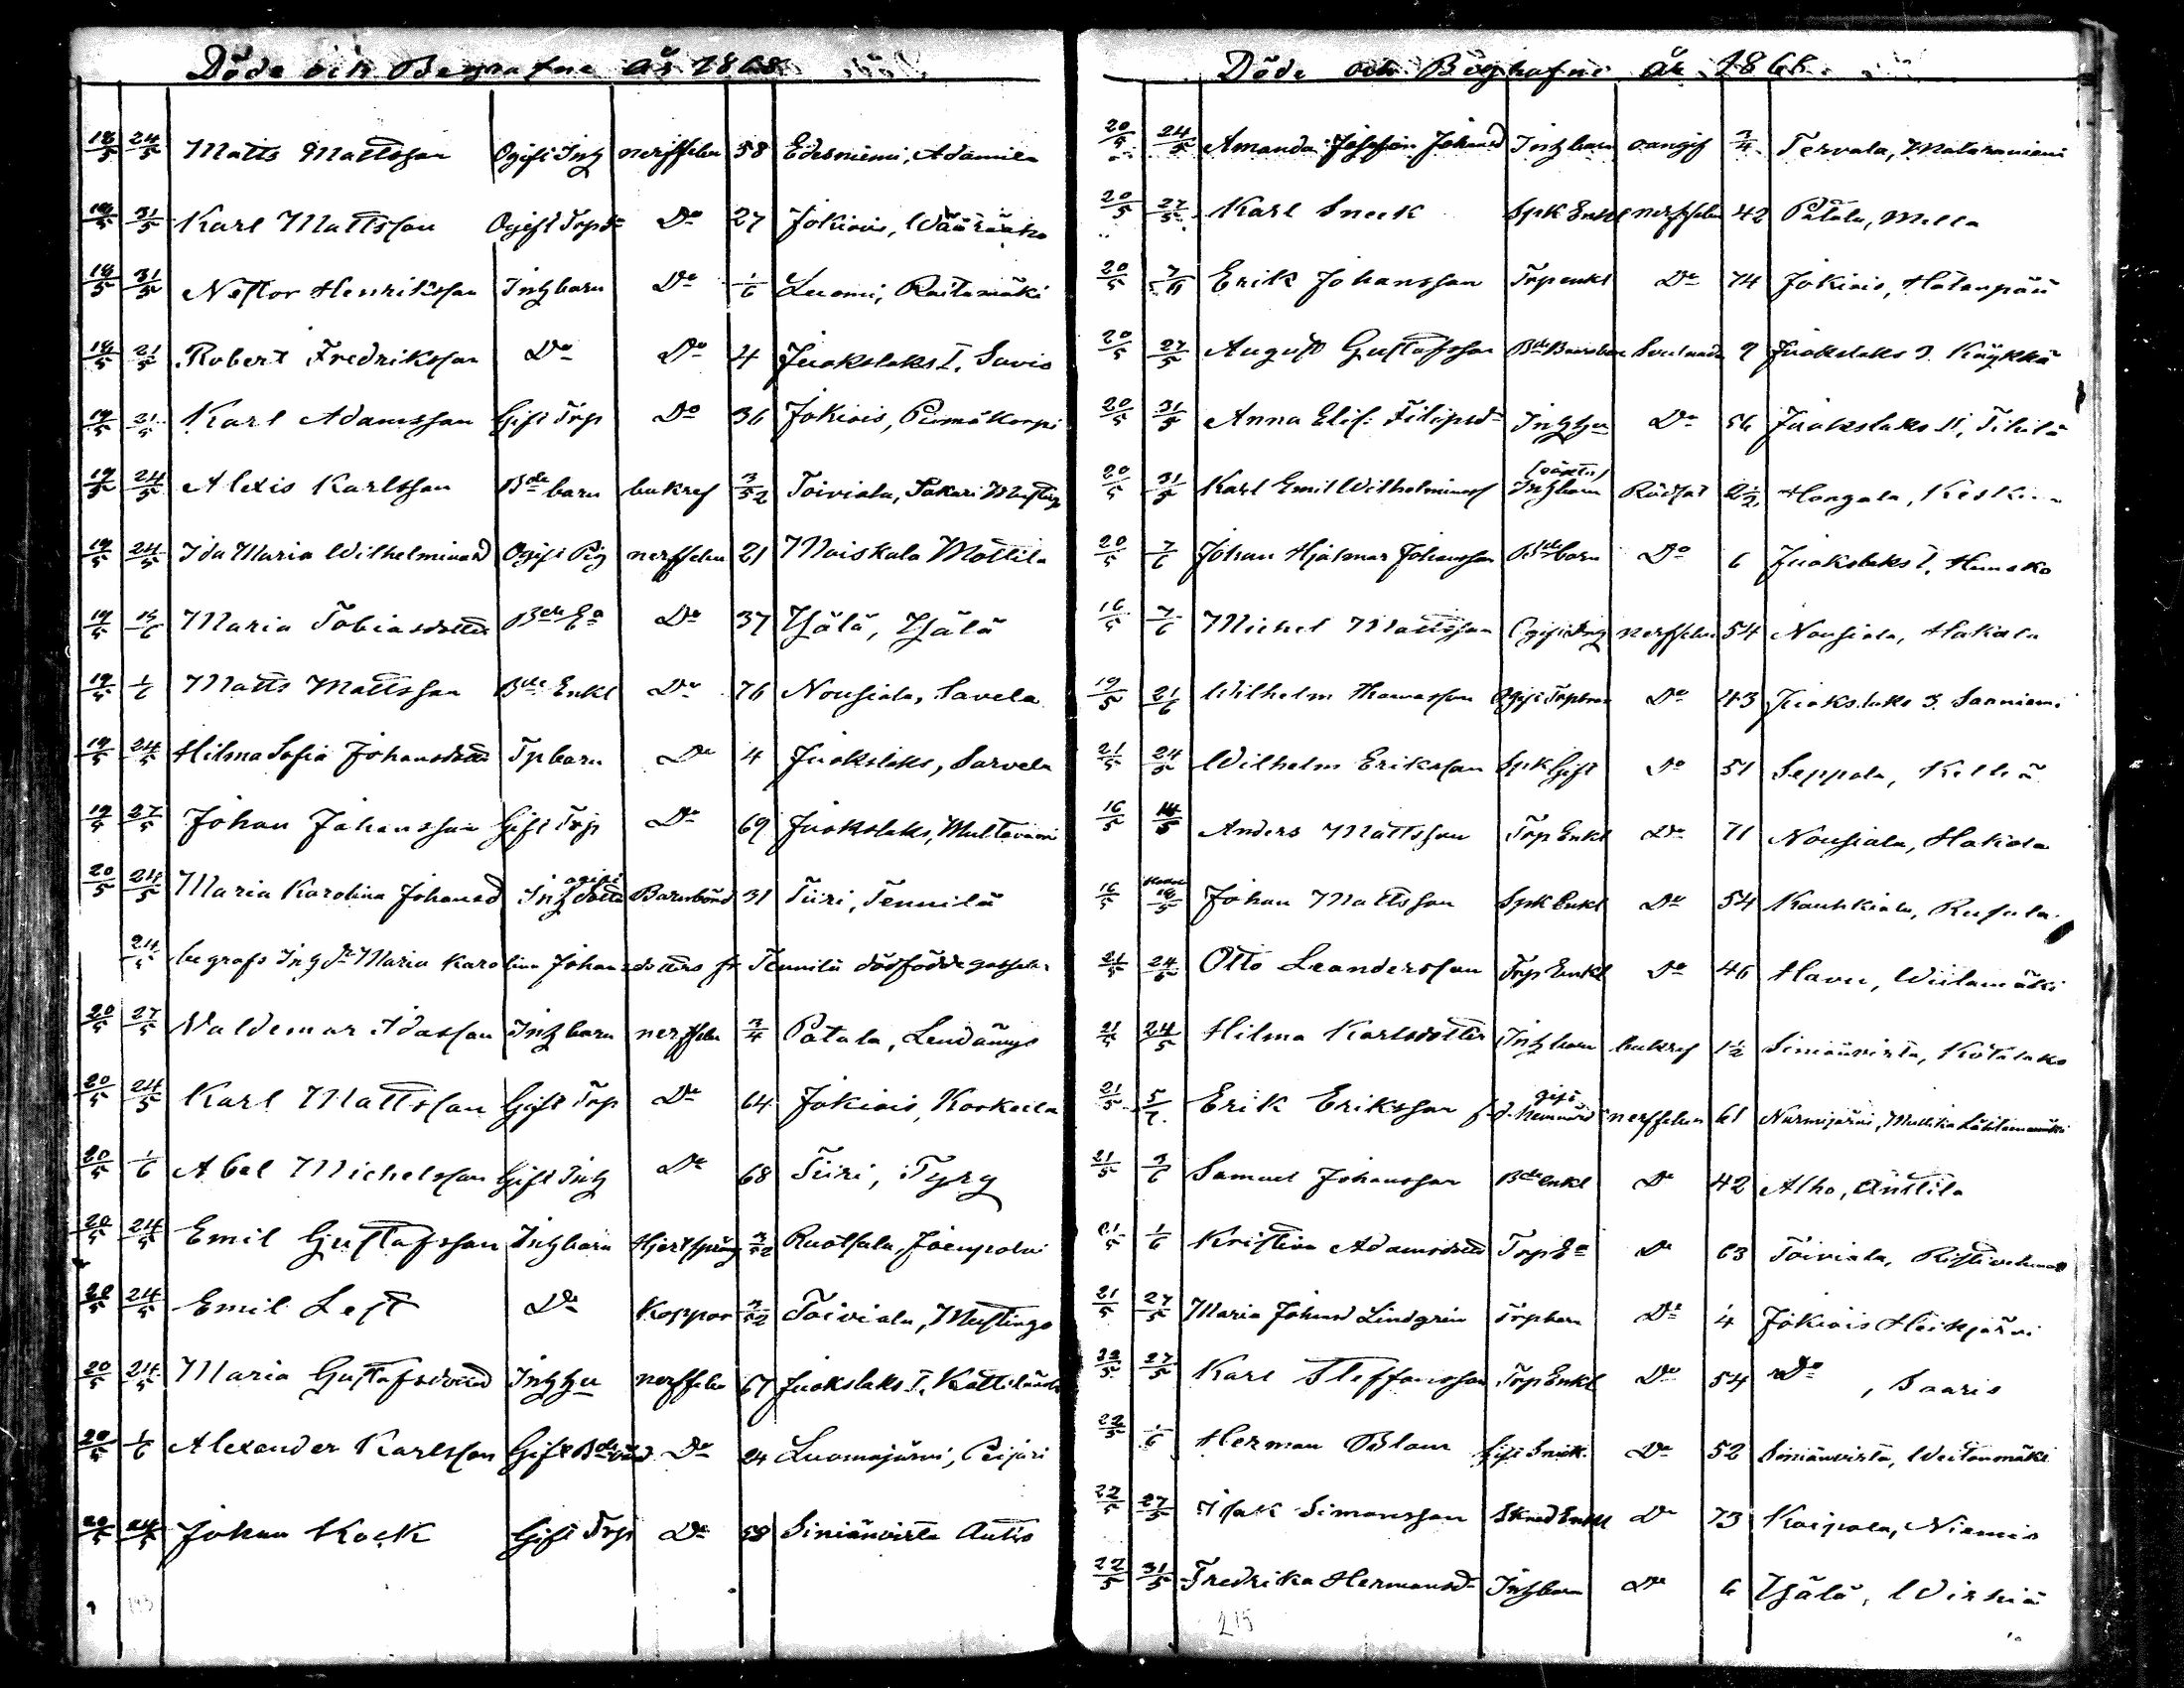 Döde och Begrafne år 1868
18/5 24/5 Matts Mattsson Ogift Inh nervfeber 58 Edesniemi, Adamila
18/5 31/5 Karl Mattsson Ogift Do 27 Jokiois,
18/5 31/5 Nestor Henriksson Inhbarn Do 1/6 Luomi, Raitamäki
18/5 21/5 Robert Fredriksson Do Do 4 Juokslaks I, Savis
19/5 21/5 Karl Adamsson Gift Trp Do 36 Jokiois,
19/5 24/5 Alexis Karlsson Bde barn bukref 3/52 Toiviala,
19/5 24/5 Ida Maria Wilhelminasd Ogift Pig nervfeber 21 Maiskala Mattila
19/5 Maria Tobiasdotter Bde Ea Do 37
19/5 1/6 Matts Mattsson Bde Enkl Do 76 Nousiala, Savela
19/5 24/5 Hilma Sofia Johansdotter Tpbarn Do 4 Juokslaks, Sarvela
19/5 27/5 Johan Johansson Gift Trp Do 69 Juokslaks,
20/5 24/5 Maria Karolina Johansd ogift Inh dotter Barnsbörd 31 Tiiri, Tennilä
24/5 begrafs Inh dr Maria Karolina Johansdotters fr Tennilä dödfödde gossebn
20/5 27/5 Valdemar Idasson Inhbarn nervfeber 3/4 Patala,
20/5 24/5 Karl Mattsson Gift Trp Do 64 Jokiois, Korkeila
20/5 1/6 Abel Michelsson Gift Inh Do 68 Tiiri, Tyry
20/5 24/5 Emil Gustafsson Inhbarn Hjertsprång 3/52 Ruotsala, Joenpolvi
20/5 24/5 Emil Left Do Koppor 3/52 Toiviala, Mustingo
20/5 24/5 Maria Gustafsdotter Inhhu nervfeber 67 Juokslaks I,
20/5 1/6 Alexander Karlsson Gift Bde Do 24 Luomajärvi, Peijari
20/5 24/5 Johan Kock Gift Trp Do 58 Siniänvirta Antis
Döde och Begrafne år 1868
20/5 24/5 Amanda Josefin Johansd Inhbarn oangif 3/4 Tervala, Mataraniemi
20/5 27/5 Karl Sneck Spk Enkl nervfeber 42 Patala, Mella
20/5 7/6 Erik Johansson Trpenkl Do 74 Jokiois, Hatanpää
20/5 27/5 August Gustafsson Bde 9 Juokslaks I. Käykkä
20/5 31/5 Anna Elis. Filipsdr Inhhu Do 56 Juokslaks II, Tikilä
20/5 31/5 Karl Emil Wilhelminas (oäkta) Inhbarn Rödsot 2½ Haapala,
20/5 7/6 Johan Hjalmar Johansson Bde barn Do 6 Juokslaks I,
16/5 7/6 Michel Mattsson Ogift Inh nervfeber 54 Nousiala, Hakiala
19/5 21/6 Wilhelm Thomasson Ogift Do 43 Juokslaks I. Sarniemi
21/5 24/5 Wilhelm Eriksson Spk Gift Do 51 Seppola,
16/5 Anders Mattsson Trp Enkl Do 71 Nousiala, Hakiala
16/5 18/5 Johan Mattsson Spk Enkl Do 54 Kauhkiala, Rusula
21/5 24/5 Otto Leandersson Trp Enkl Do 46 Havu, Wiitamäki
21/5 24/5 Hilma Karlsdotter Inhbarn bukref 1½ Siniänvirta,
21/5 5/7 Erik Eriksson gift nervfeber 61 Nurmijärvi,
21/5 7/6 Samuel Johansson Bde enkl Do 42 Alho, Anttila
21/5 1/6 Kristina Adamsdotter Trp Ea Do 63 Toiviala,
21/5 27/5 Maria Johansd Lindgrén Trpbarn Do 4 Jokiois Heikjärvi
22/5 27/5 Karl Steffansson Trp Enkl Do 54 Do, Saaris
22/5 1/6 Herman Blom Gift Snick. Do 52 Siniänvirta,
22/5 27/5 Isak Simonsson Skred Enkl Do 73 Kaipola, Niemis
22/5 31/5 Fredrika Hermansdr Inhbarn Do 6
215